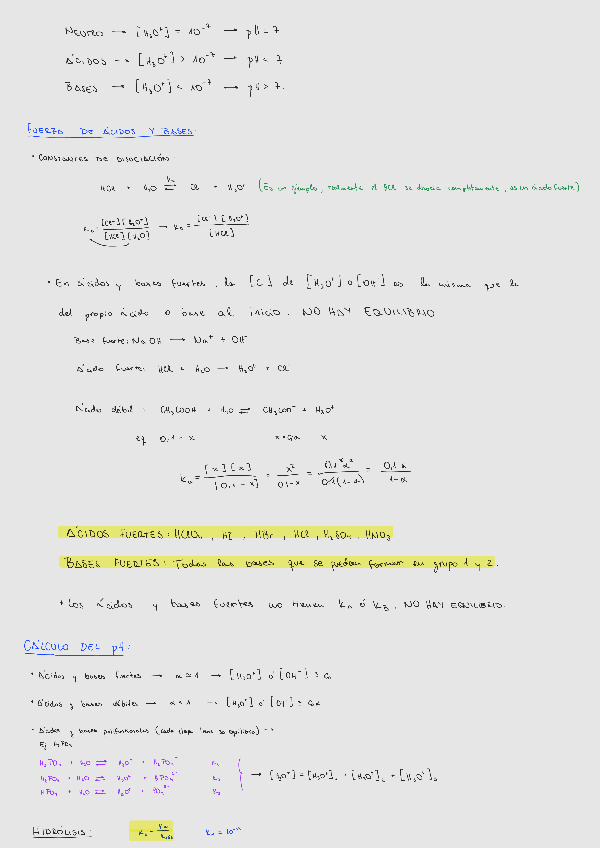 NEUTRO → [H₃O⁺] = 10⁻⁷ → pH = 7
ÁCIDOS → [H₃O⁺] > 10⁻⁷ → pH < 7
BASES → [H₃O⁺] < 10⁻⁷ → pH > 7.
FUERZA DE ÁCIDOS Y BASES:
• CONSTANTES DE DISOCIACIÓN
HCl + H₂O ⇌ Cl⁻ + H₃O⁺ (Es un ejemplo, realmente el HCl se disocia completamente, es un ácido fuerte)
Kc = [Cl⁻][H₃O⁺] / [HCl][H₂O] → Ka = [Cl⁻][H₃O⁺] / [HCl]
• En ácidos y bases fuertes, la [C] de [H₃O⁺] o [OH⁻] es la misma que la
del propio ácido o base al inicio. NO HAY EQUILIBRIO
Base fuerte: NaOH → Na⁺ + OH⁻
Ácido fuerte: HCl + H₂O → H₃O⁺ + Cl⁻
Ácido débil: CH₃COOH + H₂O ⇌ CH₃COO⁻ + H₃O⁺
eq 0,1 - x x = Cα x
Ka = [x][x] / [0,1 - x] = x² / 0,1-x = 0,1² α² / 0,1(1-α) = 0,1 α / 1-α
ÁCIDOS FUERTES: HClO₄, HI, HBr, HCl, H₂SO₄, HNO₃
BASES FUERTES: Todas las bases que se puedan formar en grupo 1 y 2.
• Los ácidos y bases fuertes no tienen Ka ó KB, NO HAY EQUILIBRIO.
CÁLCULO DEL pH:
• Ácidos y bases fuertes → α ≈ 1 → [H₃O⁺] ó [OH⁻] = C₀
• Ácidos y bases débiles → α < 1 → [H₃O⁺] ó [OH⁻] = C₀α
• Ácidos y bases polifuncionales (cada etapa tiene su equilibrio) →
Ej H₃PO₄
H₃PO₄ + H₂O ⇌ H₃O⁺ + H₂PO₄⁻ K₁
H₂PO₄ + H₂O ⇌ H₃O⁺ + HPO₄²⁻ K₂
HPO₄ + H₂O ⇌ H₃O⁺ + PO₄³⁻ K₃
→ [H₃O⁺] = [H₃O⁺]₁ + [H₃O⁺]₂ + [H₃O⁺]₃
HIDRÓLISIS: